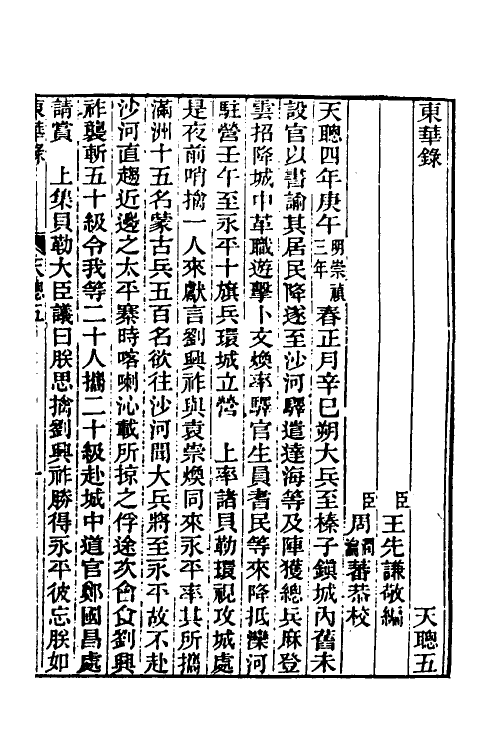 東華錄　天聰五
臣王先謙敬編
臣周潤瀹蕃恭校
天聰四年庚午明崇禎三年春正月辛巳朔大兵至榛子鎮城內舊未
設官以書諭其居民降遂至沙河驛遣達海等及陣獲總兵麻登
雲招降城中革職遊擊卜文煥率驛官生員耆民等來降抵灤河
駐營壬午至永平十旗兵環城立營　上率諸貝勒環視攻城處
是夜前哨擒一人來獻言劉興祚與袁崇煥同來永平率其所攜
滿洲十五名蒙古兵五百名欲往沙河聞大兵將至永平故不赴
沙河直趨近邊之太平寨時喀喇沁載所掠之俘途次會食劉興
祚襲斬五十級令我等二十人攜二十級赴城中道官鄭國昌處
請賞　上集貝勒大臣議曰朕思擒劉興祚勝得永平彼忘朕如
東華錄　天聰五　一